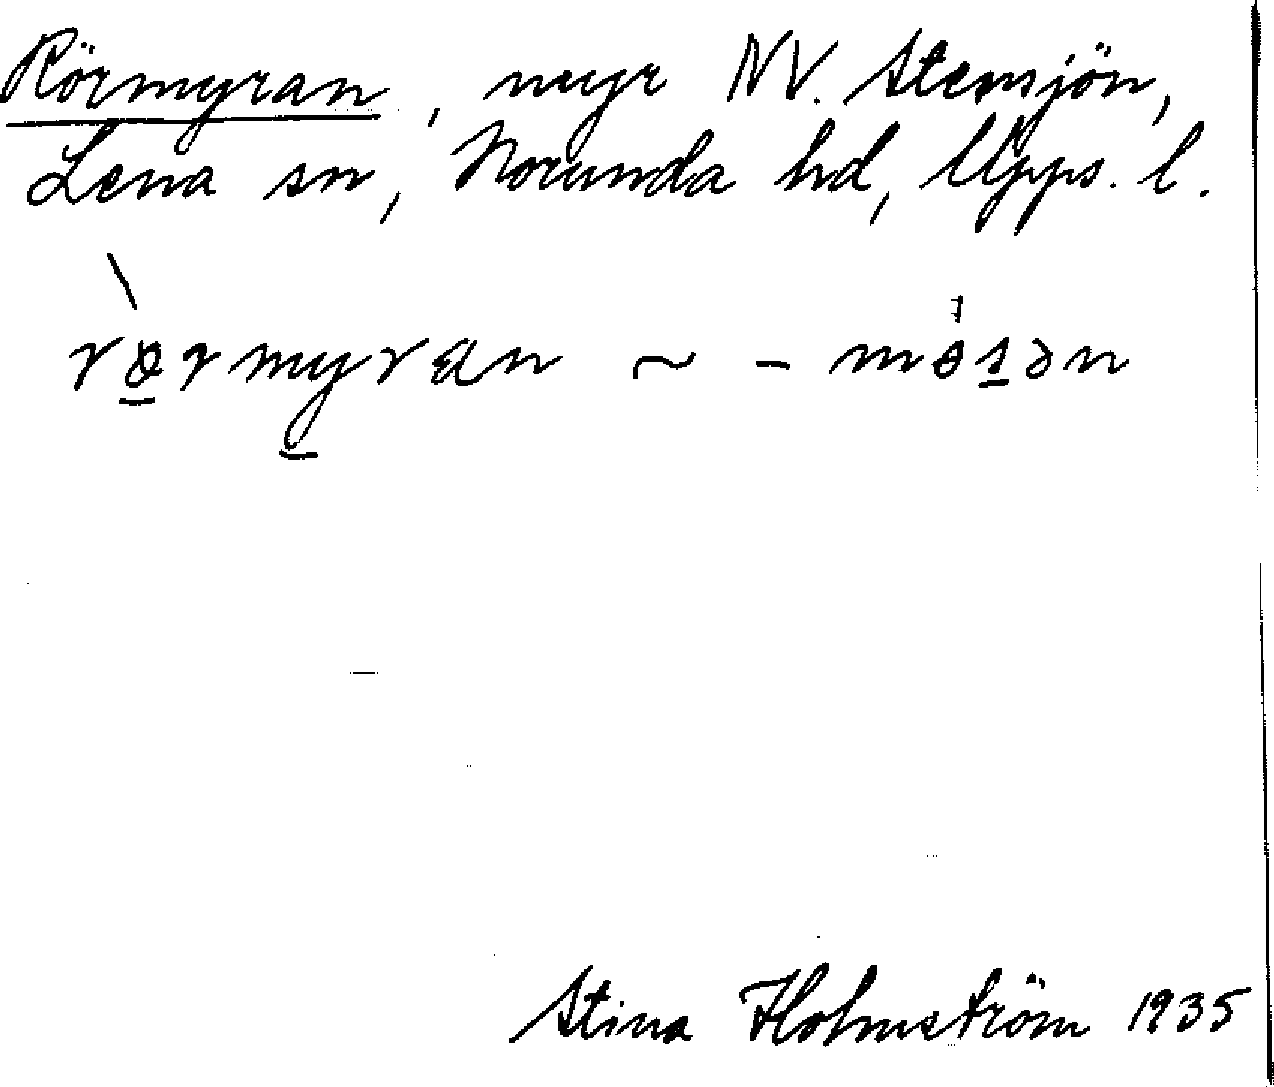 Rörmyran, myr NV. Stensjön,
Lena sn, Norunda hd, Upps. l.
rö̱rmy̱ran ~ - mɵs̱ən
Stina Holmström 1935